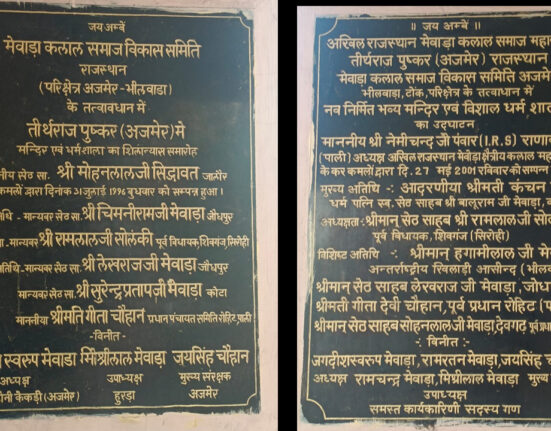 जय अम्बें
मेवाड़ा कलाल समाज विकास समिति
राजस्थान
(परिक्षेत्र अजमेर-भीलवाडा)
के तत्वावधान में
तीर्थराज पुष्कर (अजमेर) मे
मन्दिर एवं धर्मशाला का शिलान्यास समारोह
सेठ सा. श्री मोहनलालजी सिद्धावत जालौर
कमलों द्वारा दिनांक 31 जुलाई 1996 बुधवार को सम्पन्न हुआ।
मान्यवर सेठ सा. श्री चिमनीरामजी मेवाड़ा जोधपुर
मान्यवर सेठ सा. श्री रामलालजी सोलंकी पूर्व विधायक, शिवगंज, सिरोही
मान्यवर सेठ सा. श्री लेखराजजी मेवाड़ा जोधपुर
मान्यवर सेठ सा. श्री सुरेन्द्रप्रतापजी मेवाड़ा कोटा
माननीया श्रीमति गीता चौहान प्रधान पंचायत समिति रोहिट, पाली
-विनीत-
स्वरुप मेवाड़ा मिश्रीलाल मेवाड़ा जयसिंह चौहान
अध्यक्ष उपाध्यक्ष मुख्य संरक्षक
केकड़ी (अजमेर) हुरड़ा अजमेर
॥ जय अम्बे ॥
अखिल राजस्थान मेवाड़ा कलाल समाज
तीर्थराज पुष्कर (अजमेर) राजस्थान
मेवाड़ा कलाल समाज विकास समिति
भीलवाडा, टोंक, परिक्षेत्र के तत्वाधान में
नव निर्मित भव्य मन्दिर एवं विशाल धर्म
का उद्घाटन
माननीय श्री नेमीचन्द जी पंवार (I.R.S)
(पाली) अध्यक्ष अखिल राजस्थान मेवाड़ा क्षैत्रीय कलाल
के कर कमलों द्वारा दि. 27 मई 2001 रविवार को
मुख्य अतिथि :- आदरणीया श्रीमती कंचन
धर्म पत्नि स्व. सेठ साहब श्री बालूराम जी मेवाड़ा,
अध्यक्षता :- श्रीमान् सेठ साहब श्री रामलाल जी
पूर्व विधायक, शिवगंज (सिरोही)
विशिष्ट अतिथि :- श्रीमान् हगामीलाल जी
अन्तर्राष्ट्रीय खिलाड़ी आसीन्द
श्रीमान् सेठ साहब लेखराज जी मेवाड़ा,
श्रीमती गीता देवी चौहान, पूर्व प्रधान रोहिट
श्रीमान् सेठ साहब सोहनलालजी मेवाड़ा, देवगढ़
-: विनीत :-
जगदीशस्वरुप मेवाड़ा, रामरतन मेवाड़ा, जयसिंह
अध्यक्ष रामचन्द्र मेवाड़ा, मिश्रीलाल मेवाड़ा
उपाध्यक्ष
समस्त कार्यकारिणी सदस्य गण